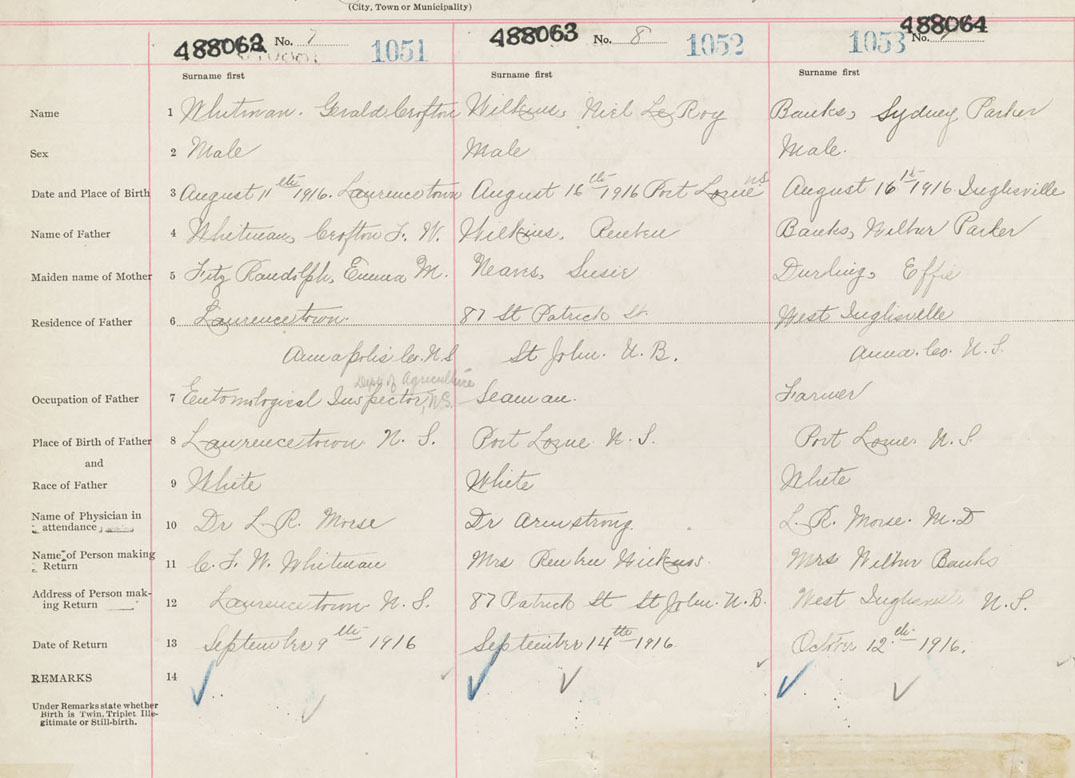 (City, Town or Municipality)
488062 No. 7 1051 488063 No. 8 1052 1053 488064 No.
Surname first Surname first Surname first
Name 1 Whitman. Gerald Crofton Wilkins, Niel Le Roy Banks, Sydney Parker
Sex 2 Male Male Male.
Date and Place of Birth 3 August 11th 1916. Laurencetown August 16th 1916 Port Lorne N.S. August 16th 1916 Inglisville
Name of Father 4 Whitman, Crofton F. W. Wilkins, Reuben Banks, Wilbur Parker
Maiden name of Mother 5 Fitz Randolph, Emma M. Neaves, Susie Durling, Effie
Residence of Father 6 Laurencetown. 87 St Patrick St. West Inglisville
Annapolis Co. N.S St John. N.B. Anna. Co. N.S.
Dept of Agriculture
Occupation of Father 7 Entomological Inspector, N.S. Seaman. Farmer
Place of Birth of Father 8 Laurencetown N.S. Port Lorne N.S. Port Lorne. N.S
and
Race of Father 9 White White White
Name of Physician in
attendance 10 Dr L. R. Morse Dr Armstrong L. R. Morse. M.D
Name of Person making
Return 11 C. F. W. Whitman Mrs Reuben Wilkins. Mrs Wilbur Banks
Address of Person mak-
ing Return 12 Laurencetown N.S. 87 Patrick St St John. N.B. West N.S.
Date of Return 13 September 9th 1916 September 14th 1916. October 12th 1916.
REMARKS 14
Under Remarks state whether
Birth is Twin, Triplet Ille-
gitimate or Still-birth.